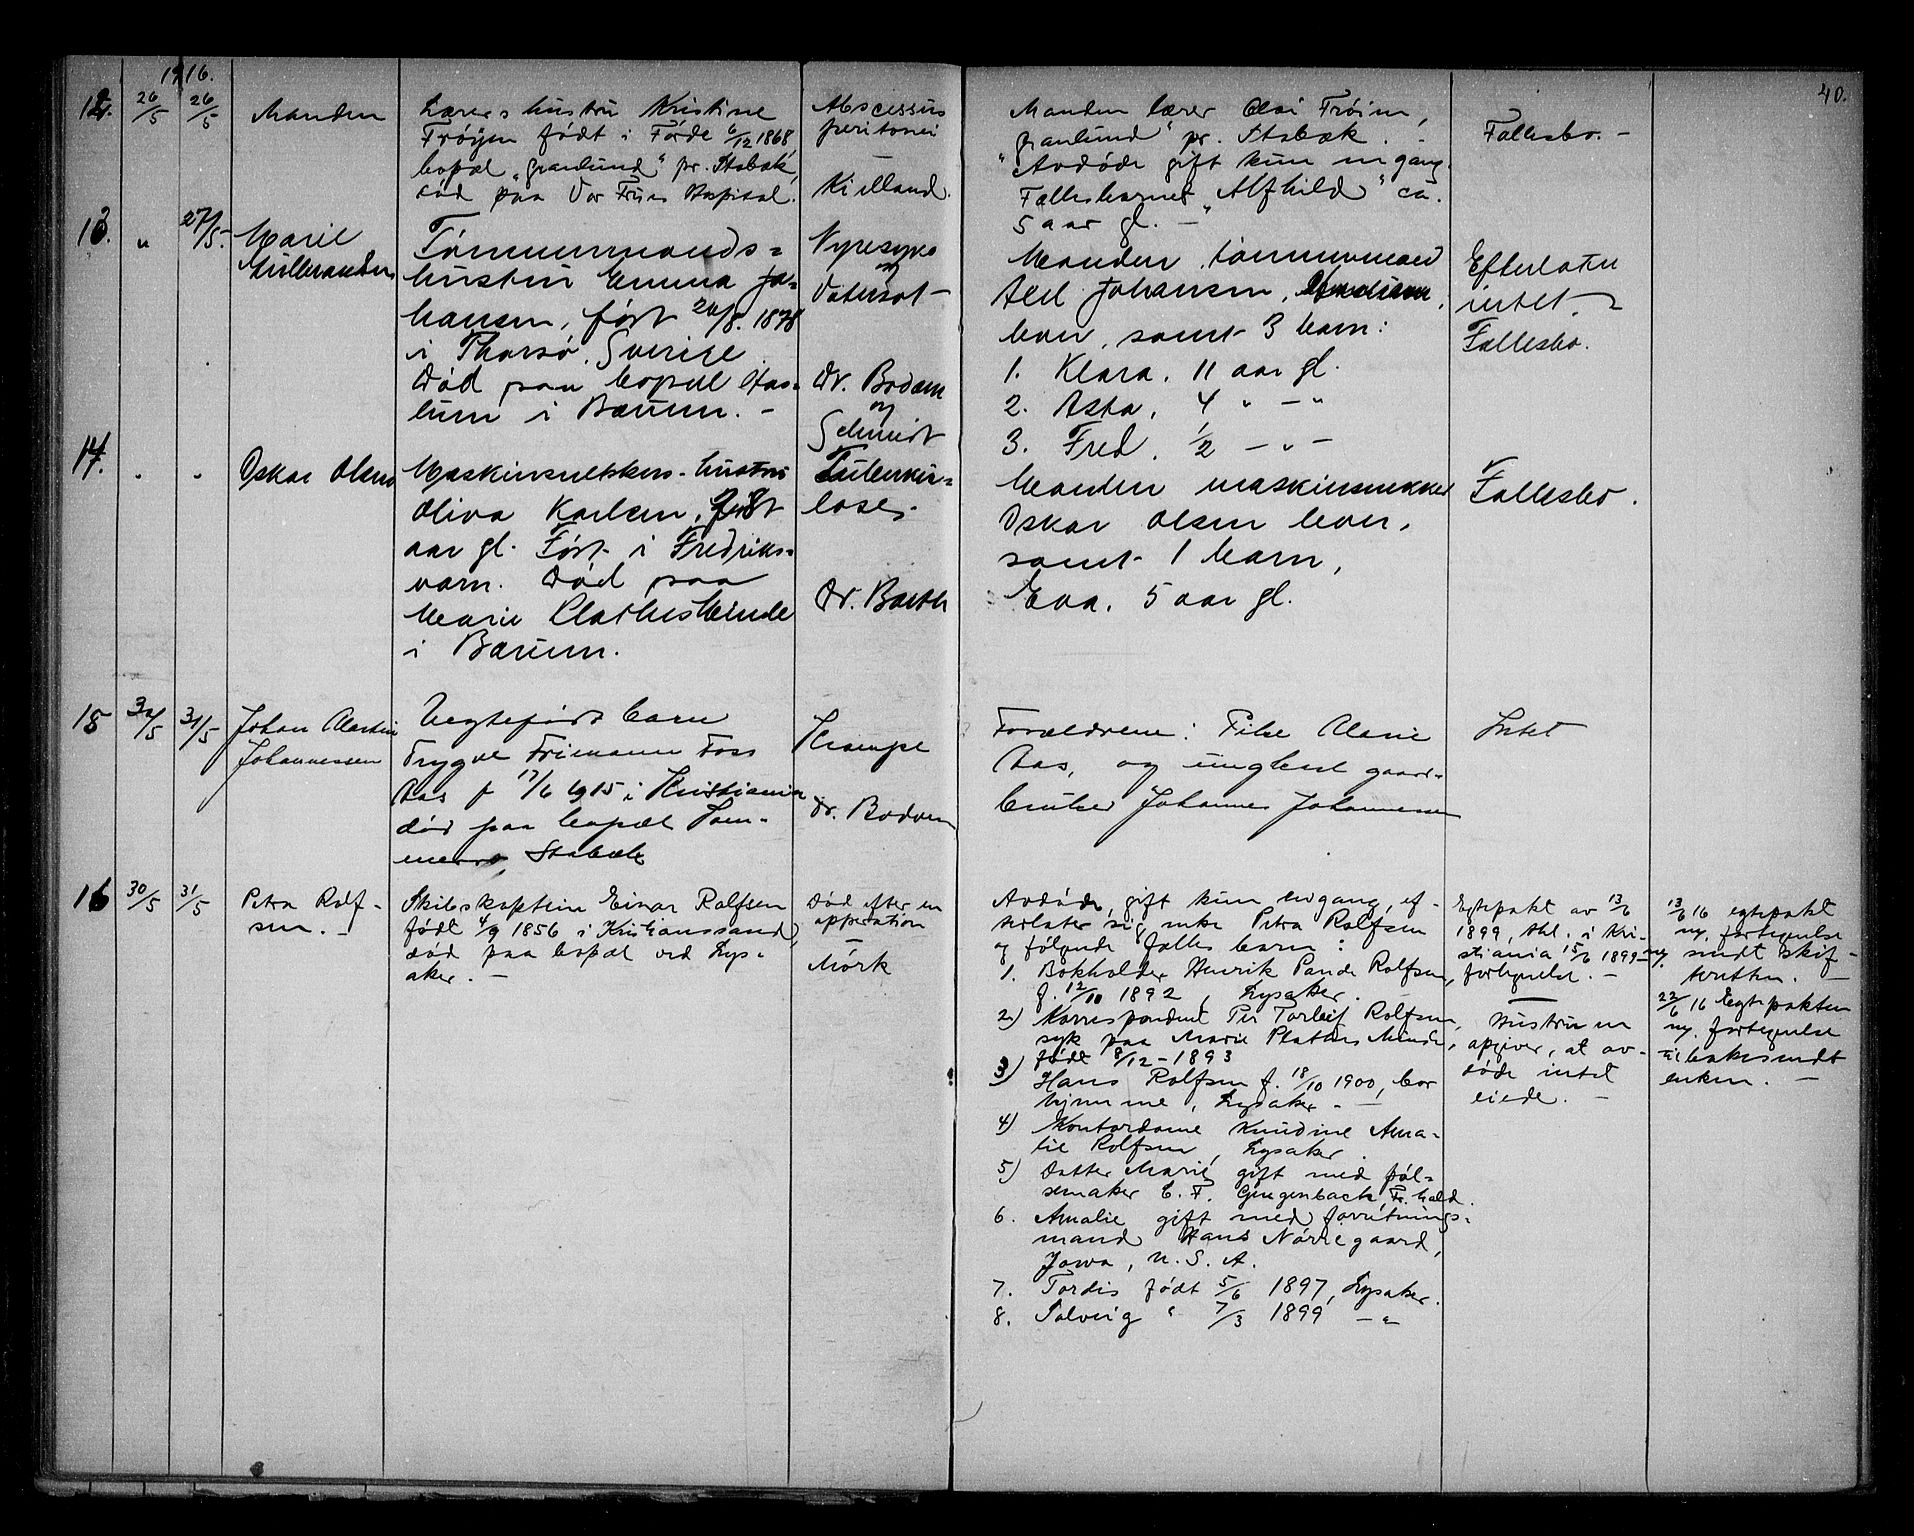 1916.
40.
12. 26/5 26/5 Manden
Lærers hustru Kristine
Frøyen født i Førde 6/12 1868,
bopæl „Granlund" pr. Stabæk,
død paa Vor Frues Hospital.
Abscessus
peritonei
—
Kielland.
Manden lærer Frøien,
„Granlund" pr. Stabæk.
Avdøde gift kun en gang.
Fællesbarnet „Alfhild" ca.
5 aar gl. —
Fællesbo. —
13. " 27/5. Marie
Tømmermands-
hustru Emma Jo-
hansen, født 20/8. 1878
i Thorsø, Sverige.
Død paa bopæl Has-
lum i Bærum. —
Nyresyke
og
Vatersot —
Dr. Bodom
og
Schmidt
Manden, tømmermand
Axel Johansen,
lever, samt 3 barn:
1. Klara, 11 aar gl.
2. Asta, 4 " — "
3. Fred, 1/2 — " —
Efterlater
intet. —
Fællesbo.
14. " " Oskar Olsen
Maskinsnekkers hustru
Oliva Karlsen,
aar gl. Født i Fredriks-
værn. Død paa
Marie Plathes Minde
i Bærum.
Tuberku-
lose.
Dr. Barth
Manden maskinsnekker
Oskar Olsen lever,
samt 1 barn,
Eva, 5 aar gl.
Fællesbo.
15 30/5 31/5 Johan Martin
Johannessen
Uegtefødt barn
Trygve Frimann Foss
Aas f 17/6 1915 i Kristiania
død paa bopæl
Stabæk
Krampe
Dr. Bodom
Forældrene: Pike Marie
Aas, og ungkarl gaard-
bruker Johannes Johannessen
Intet
16 30/5 31/5 Petra Rolf-
sen. —
Skibskaptein Einar Rolfsen
født 4/9 1856 i Kristianssand,
død paa bopæl ved Lys-
aker. —
Død efter en
opperation
—
Mørk
Avdøde, gift kun engang, ef-
terlater sig enke Petra Rolfsen
og følgende fælles barn:
1. Bokholder Henrik Pande Rolfsen,
f. 12/10 1892, Lysaker.
2) Korrespondent Per Torleif Rolfsen,
syk paa Marie Plathes Minde,
født 8/12 - 1893
3) Hans Rolfsen f. 18/10 1900, bor
hjemme, Lysaker. —
4) Kontordame Knudine Ama-
lie Rolfsen, Lysaker.
5) Datter Marie gift med pøl-
semaker E. F. Gingenback Fr.hald.
6. Amalie gift med forretnings-
mand Hans Nørregaard,
Jowa, U. S. A.
7. Tordis født 5/6 1897, Lysaker.
8. Solveig " 7/3 1899 — "
Egtepakt av 13/6
1899, thl. i Kri-
stiania 15/6 1899 — m.
fortegnelse. —
Hustruen
opgiver, at av-
døde intet
eiede. —
13/6 16 egtepakt
m. fortegnelse
sendt skif-
teretten. —
22/6 16 Egtepakten
m. fortegnelse
tilbakesendt
enken. —